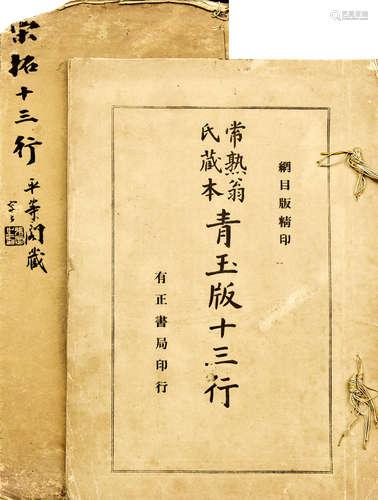 宋拓十三行
平等閣藏
網目版精印
常熟翁
氏藏本
青玉版十三行
有正書局印行